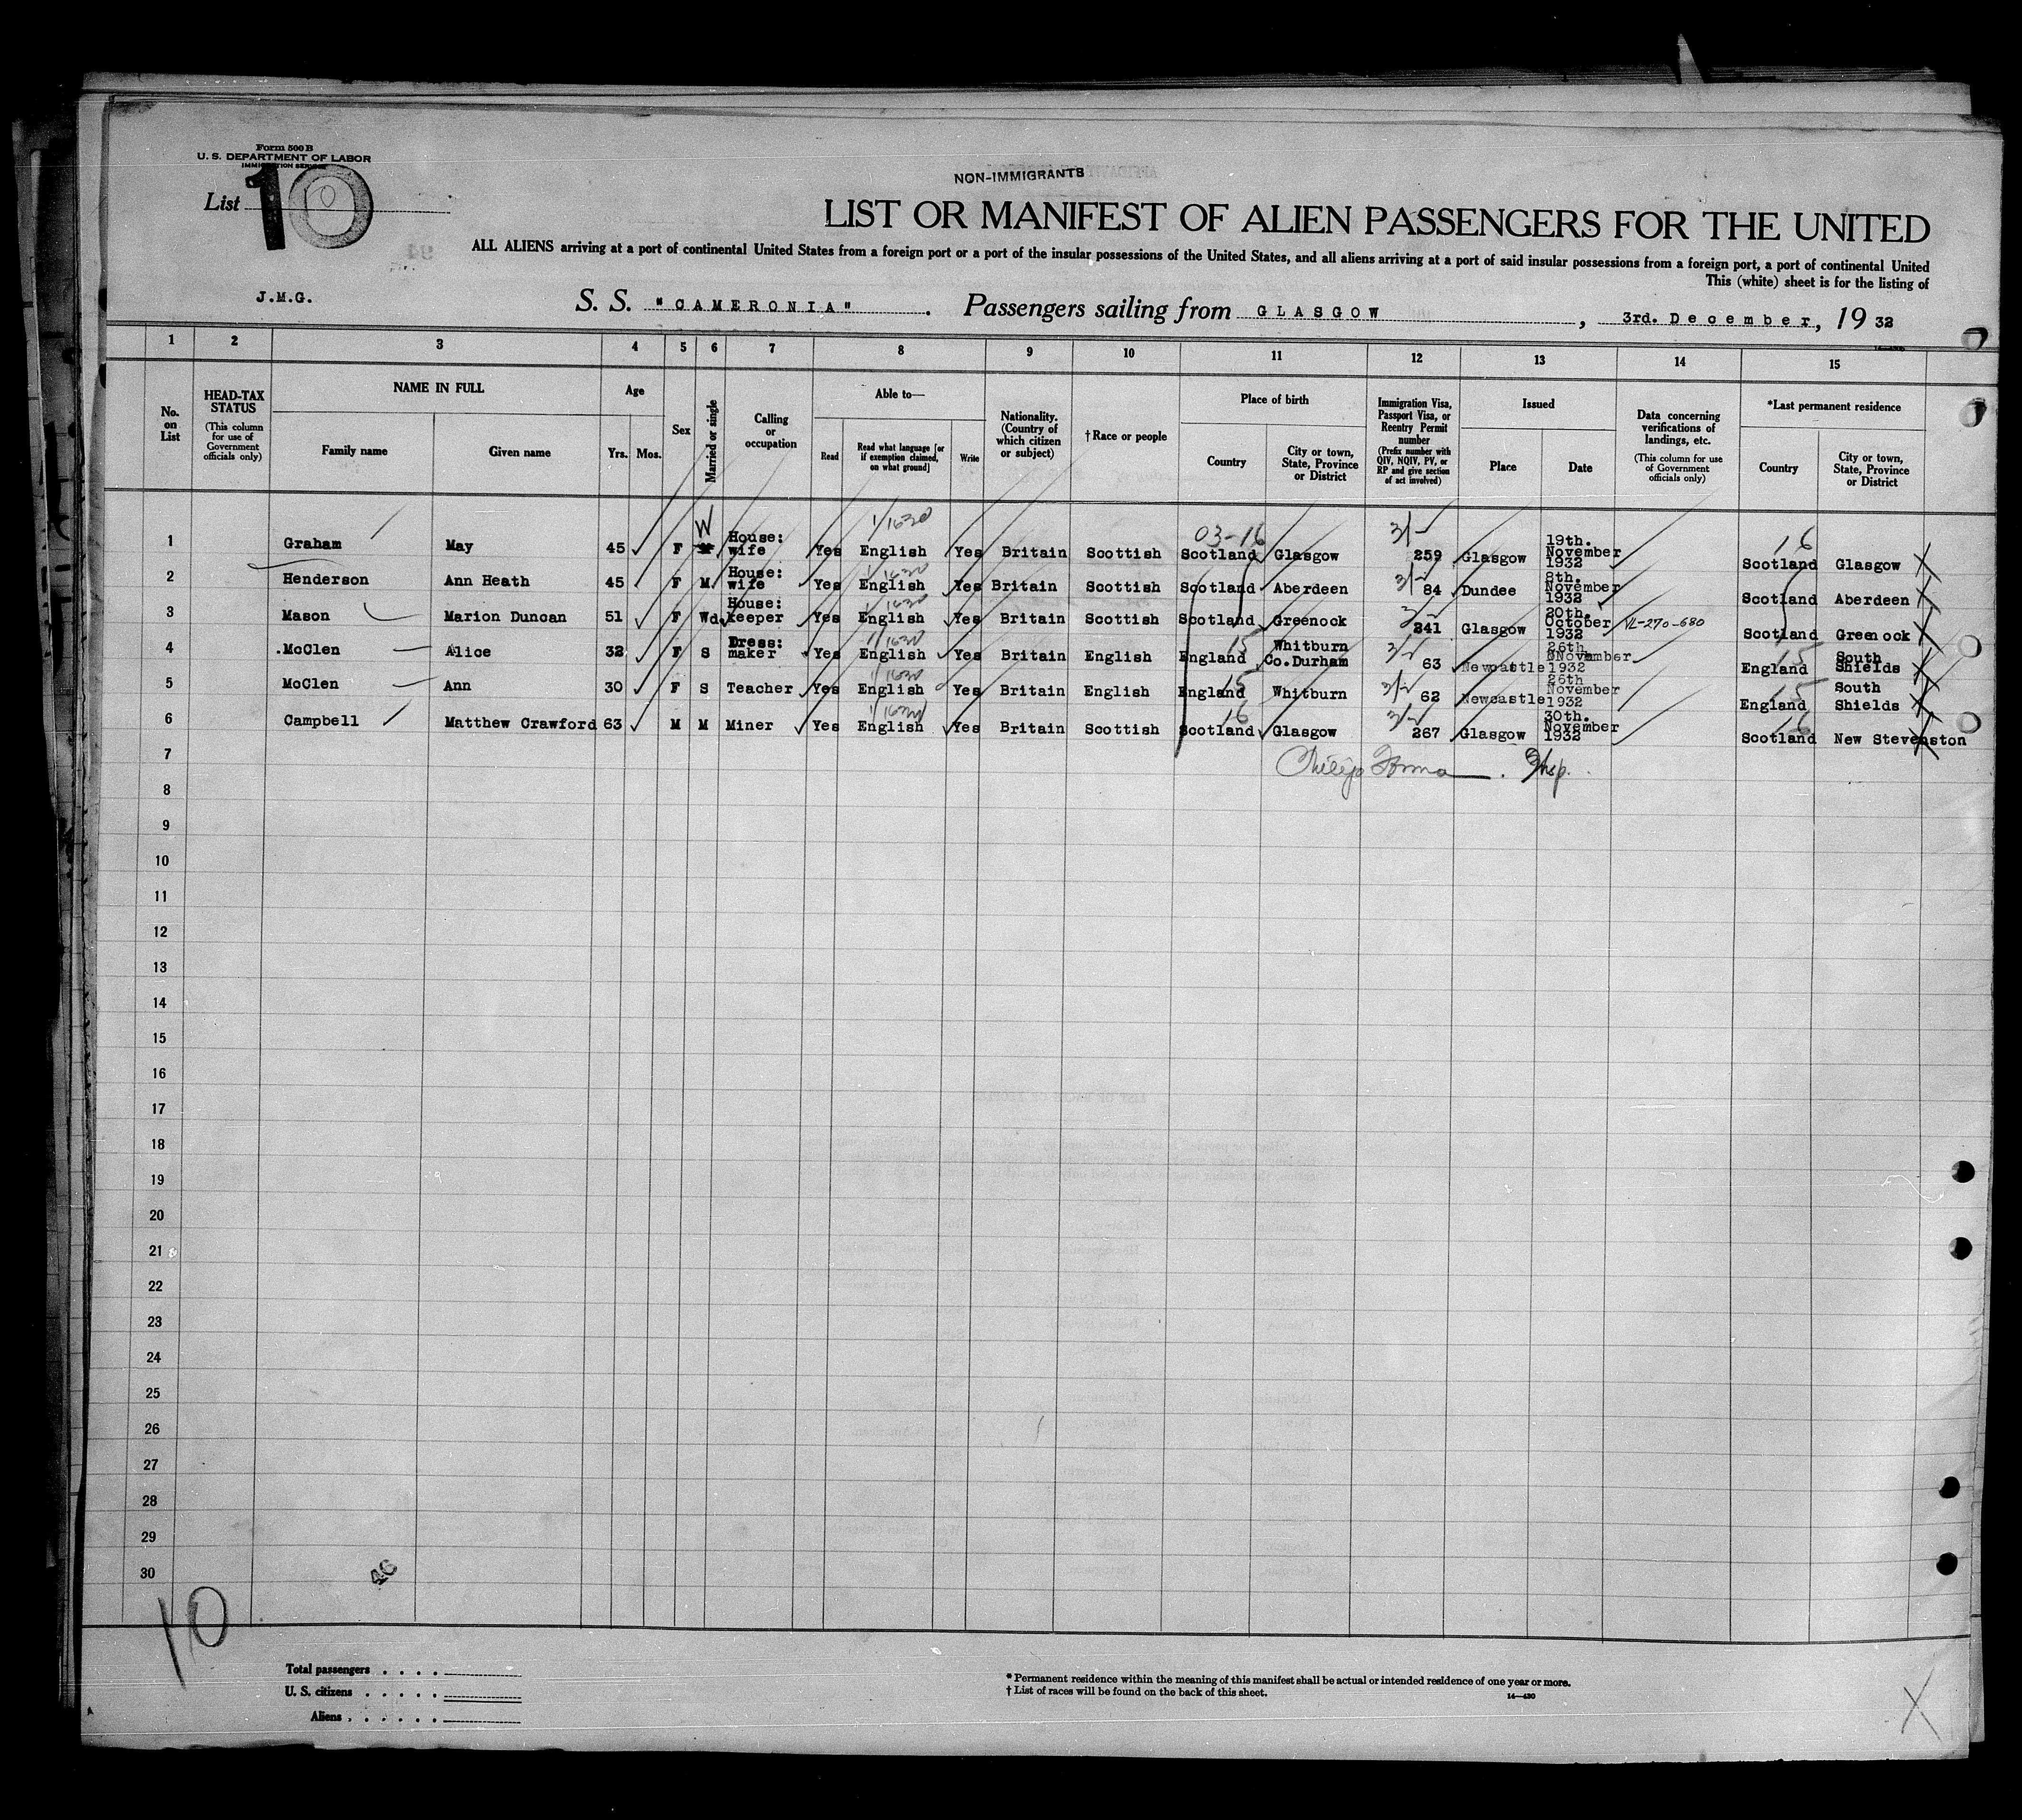 Form 500 B
U. S. DEPARTMENT OF LABOR
IMMIGRATION SERVICE
List 10
NON-IMMIGRANTS
LIST OR MANIFEST OF ALIEN PASSENGERS FOR THE UNITED
ALL ALIENS arriving at a port of continental United States from a foreign port or a port of the insular possessions of the United States, and all aliens arriving at a port of said insular possessions from a foreign port, a port of continental United
This (white) sheet is for the listing of
J.M.G. S. S. "CAMERONIA". Passengers sailing from GLASGOW, 3rd. December, 19 32
1 2 3 4 5 6 7 8 9 10 11 12 13 14 15
No. on List
HEAD-TAX STATUS (This column for use of Government officials only)
NAME IN FULL Family name Given name
Age Yrs. Mos.
Sex
Married or single
Calling or occupation
Able to— Read Read what language [or if exemption claimed, on what ground] Write
Nationality. (Country of which citizen or subject)
†Race or people
Place of birth Country City or town, State, Province or District
Immigration Visa, Passport Visa, or Reentry Permit number (Prefix number with QIV, NQIV, PV, or RP and give section of act involved)
Issued Place Date
Data concerning verifications of landings, etc. (This column for use of Government officials only)
*Last permanent residence Country City or town, State, Province or District
1 Graham May 45 F W House: wife Yes English Yes Britain Scottish 03-16 Scotland Glasgow 3/- 259 Glasgow 19th. November 1932 16 Scotland Glasgow X
2 Henderson Ann Heath 45 F M House: wife Yes English Yes Britain Scottish Scotland Aberdeen 84 Dundee 8th. November 1932 Scotland Aberdeen X
3 Mason Marion Duncan 51 F Wd House: keeper Yes English Yes Britain Scottish Scotland Greenock 241 Glasgow 20th. October 1932 VL-270-680 Scotland Greenock X
4 McClen Alice 32 F S Dress: maker Yes English Yes Britain English 15 England Whitburn Co.Durham 63 Newcastle 26th NNovember 1932 15 England South Shields X
5 McClen Ann 30 F S Teacher Yes English Yes Britain English 15 England Whitburn 62 Newcastle 26th November 1932 15 England South Shields X
6 Campbell Matthew Crawford 63 M M Miner Yes English Yes Britain Scottish 16 Scotland Glasgow 267 Glasgow 30th. November 1932 16 Scotland New Stevenston X
7 Insp.
8
9
10
11
12
13
14
15
16
17
18
19
20
21
22
23
24
25
26
27
28
29
30
46
10
Total passengers
U. S. citizens
Aliens
* Permanent residence within the meaning of this manifest shall be actual or intended residence of one year or more.
† List of races will be found on the back of this sheet.
14—430
X